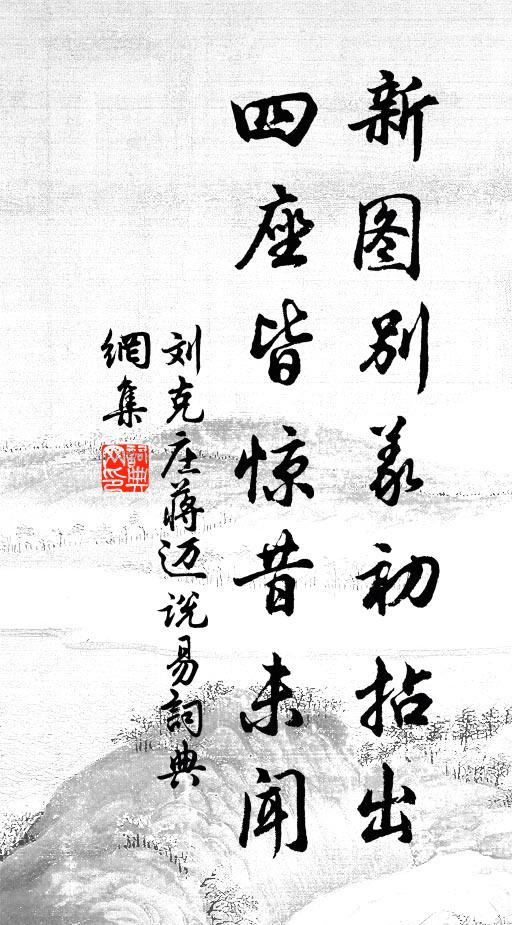 新图别义初拈出
四座皆惊昔未闻
刘克庄蒋迈说易詞典
網集
詞典
网印